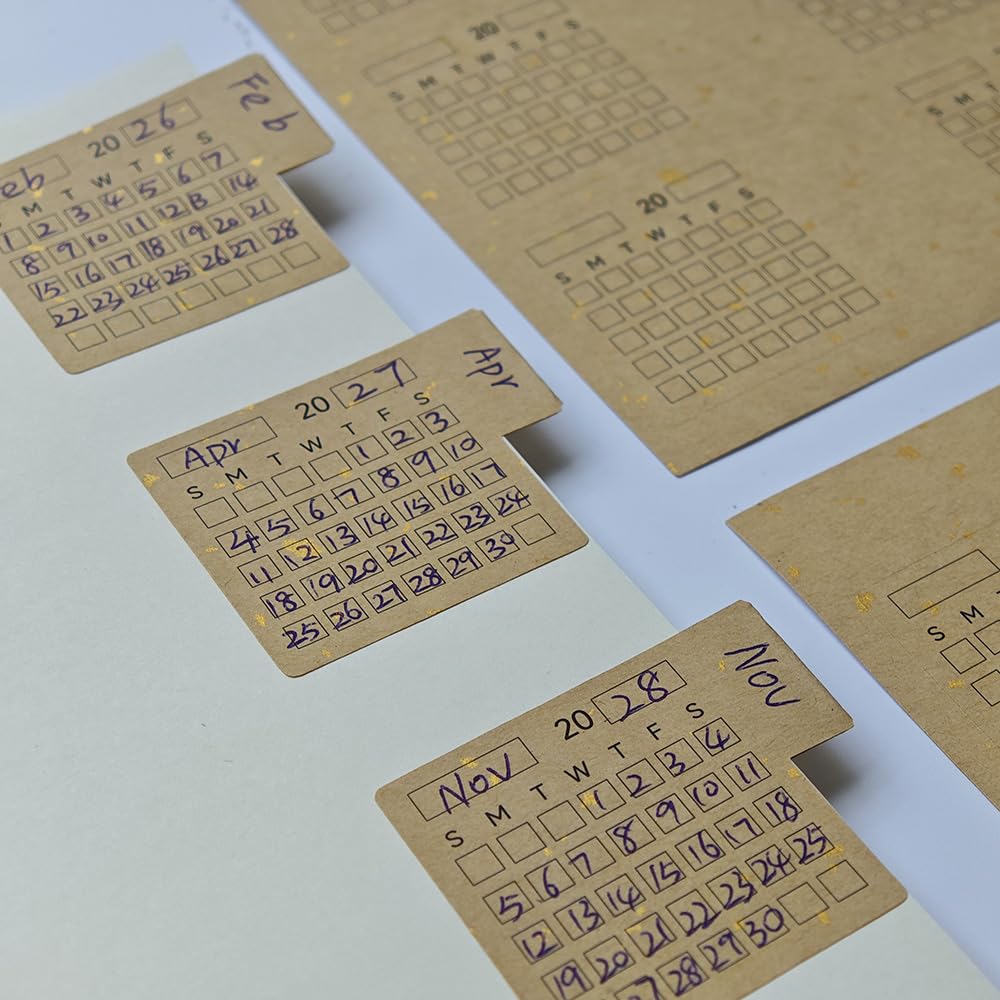 Feb
eb 20 26
M T W T F S
1 2 3 4 5 6 7
8 9 10 11 12 13 14
15 16 17 18 19 20 21
22 23 24 25 26 27 28
Apr
Apr 20 27
S M T W T F S
1 2 3
4 5 6 7 8 9 10
11 12 13 14 15 16 17
18 19 20 21 22 23 24
25 26 27 28 29 30
Nov
Nov 20 28
S M T W T F S
1 2 3 4
5 6 7 8 9 10 11
12 13 14 15 16 17 18
19 20 21 22 23 24 25
27 28 29 30
20
S M T W T F S
20
S M T W T F S
S M T
S M